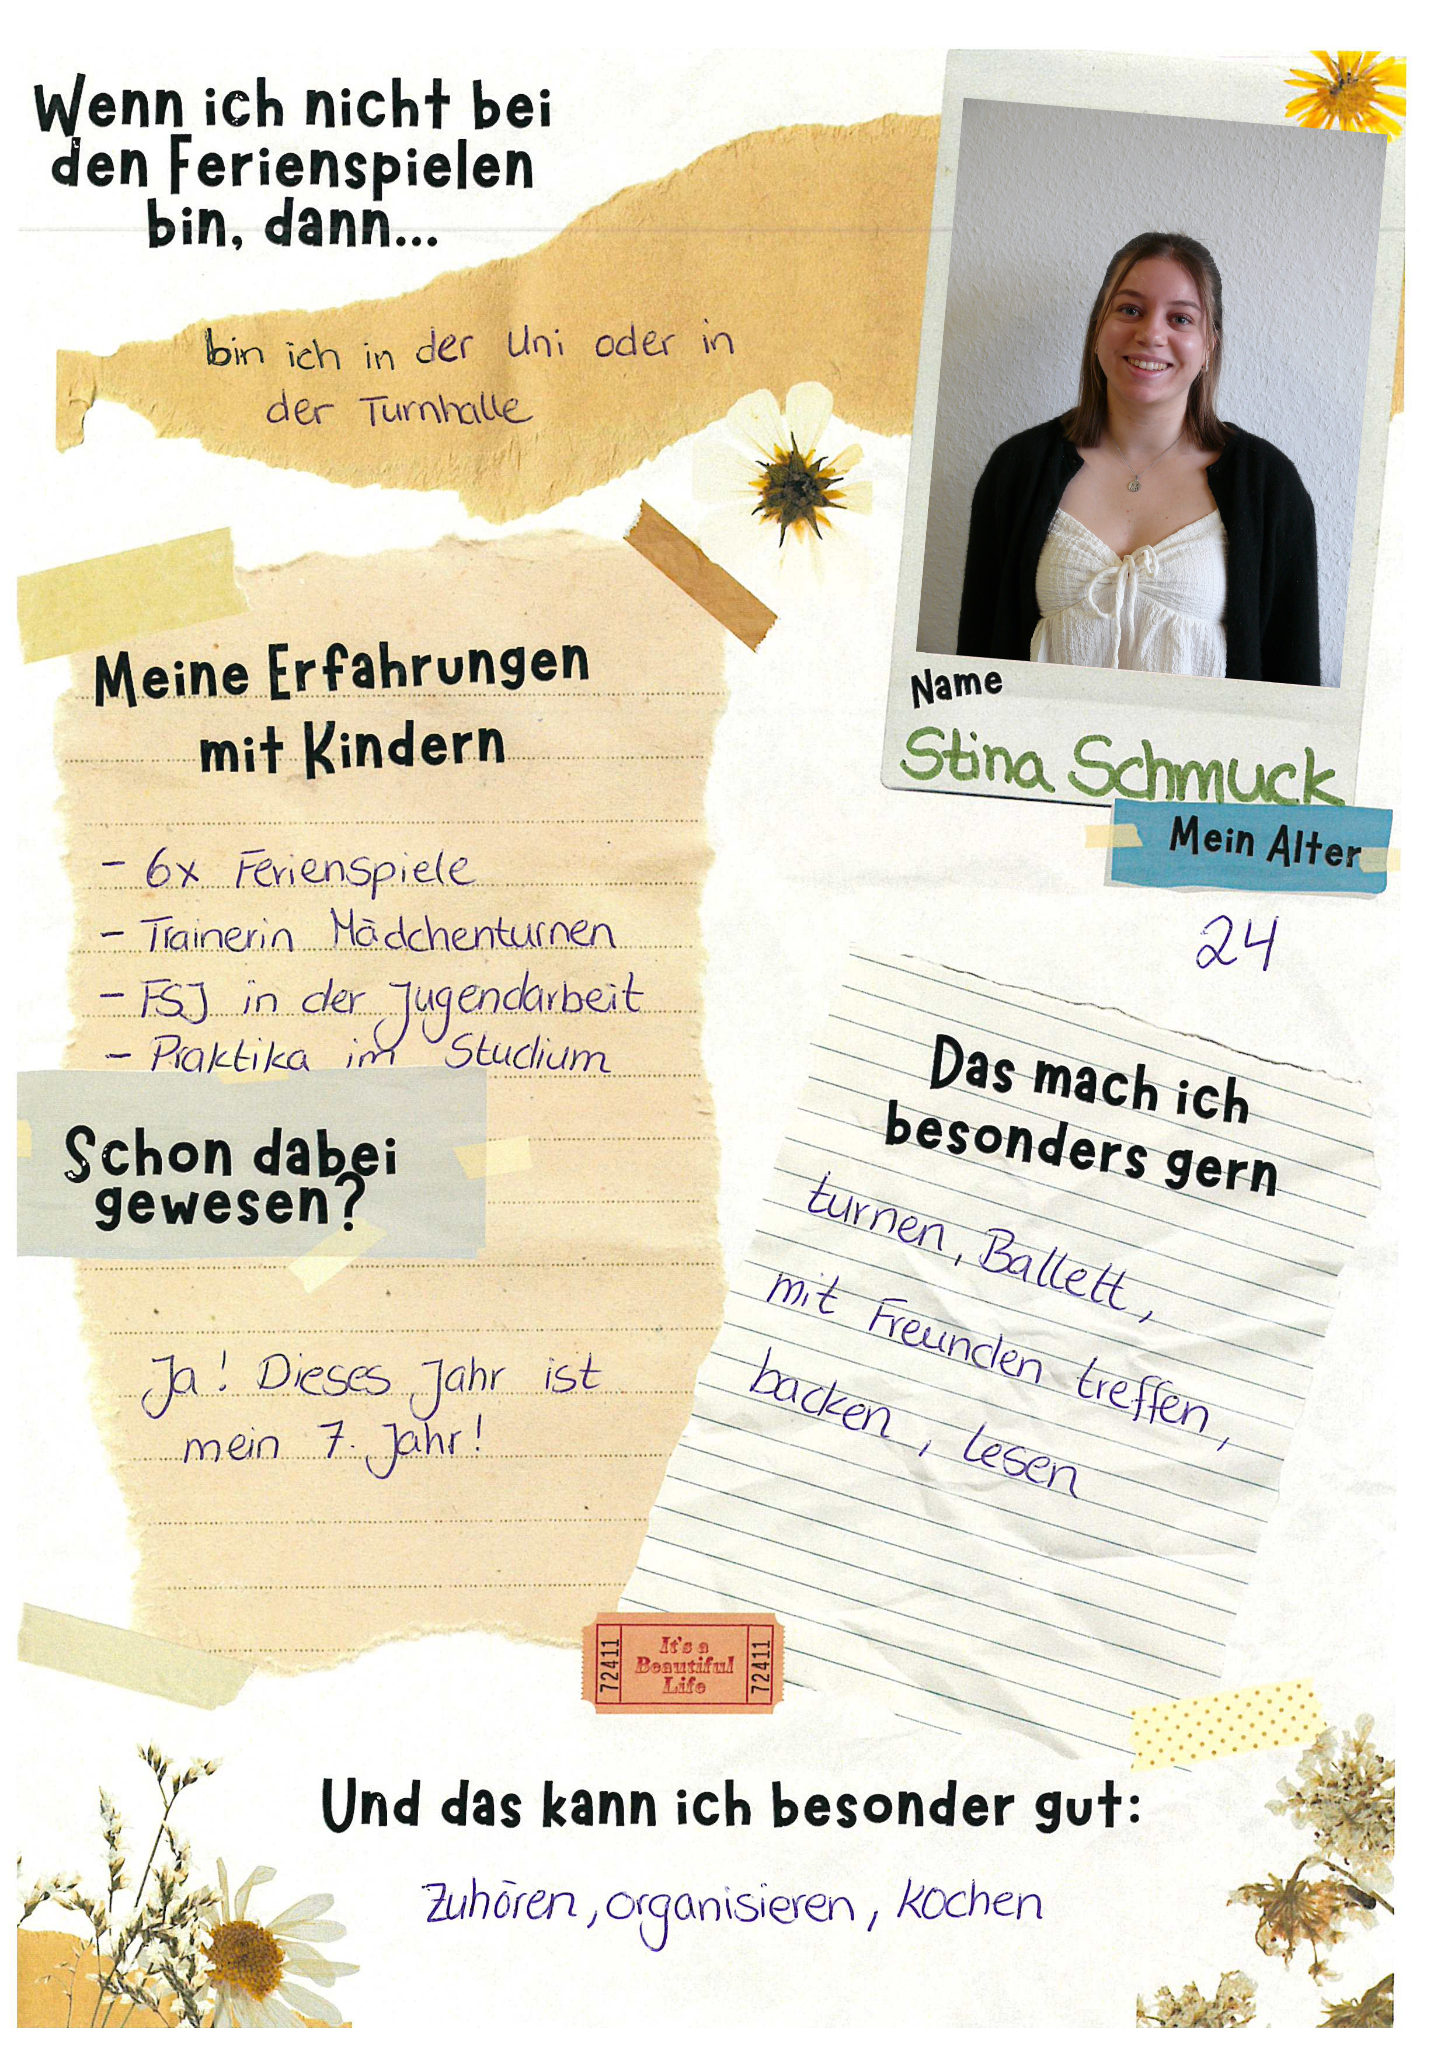 Wenn ich nicht bei
den Ferienspielen
bin, dann...
bin ich in der Uni oder in
der Turnhalle
Name
Stina Schmuck
Mein Alter
24
Meine Erfahrungen
mit Kindern
- 6x Ferienspiele
- Trainerin Mädchenturnen
- FSJ in der Jugendarbeit
- Praktika im Studium
Schon dabei
gewesen?
Ja! Dieses Jahr ist
mein 7. Jahr!
Das mach ich
besonders gern
turnen, Ballett,
mit Freunden treffen,
backen, lesen
72411
It's a
Beautiful
Life
72411
Und das kann ich besonder gut:
Zuhören, organisieren, kochen